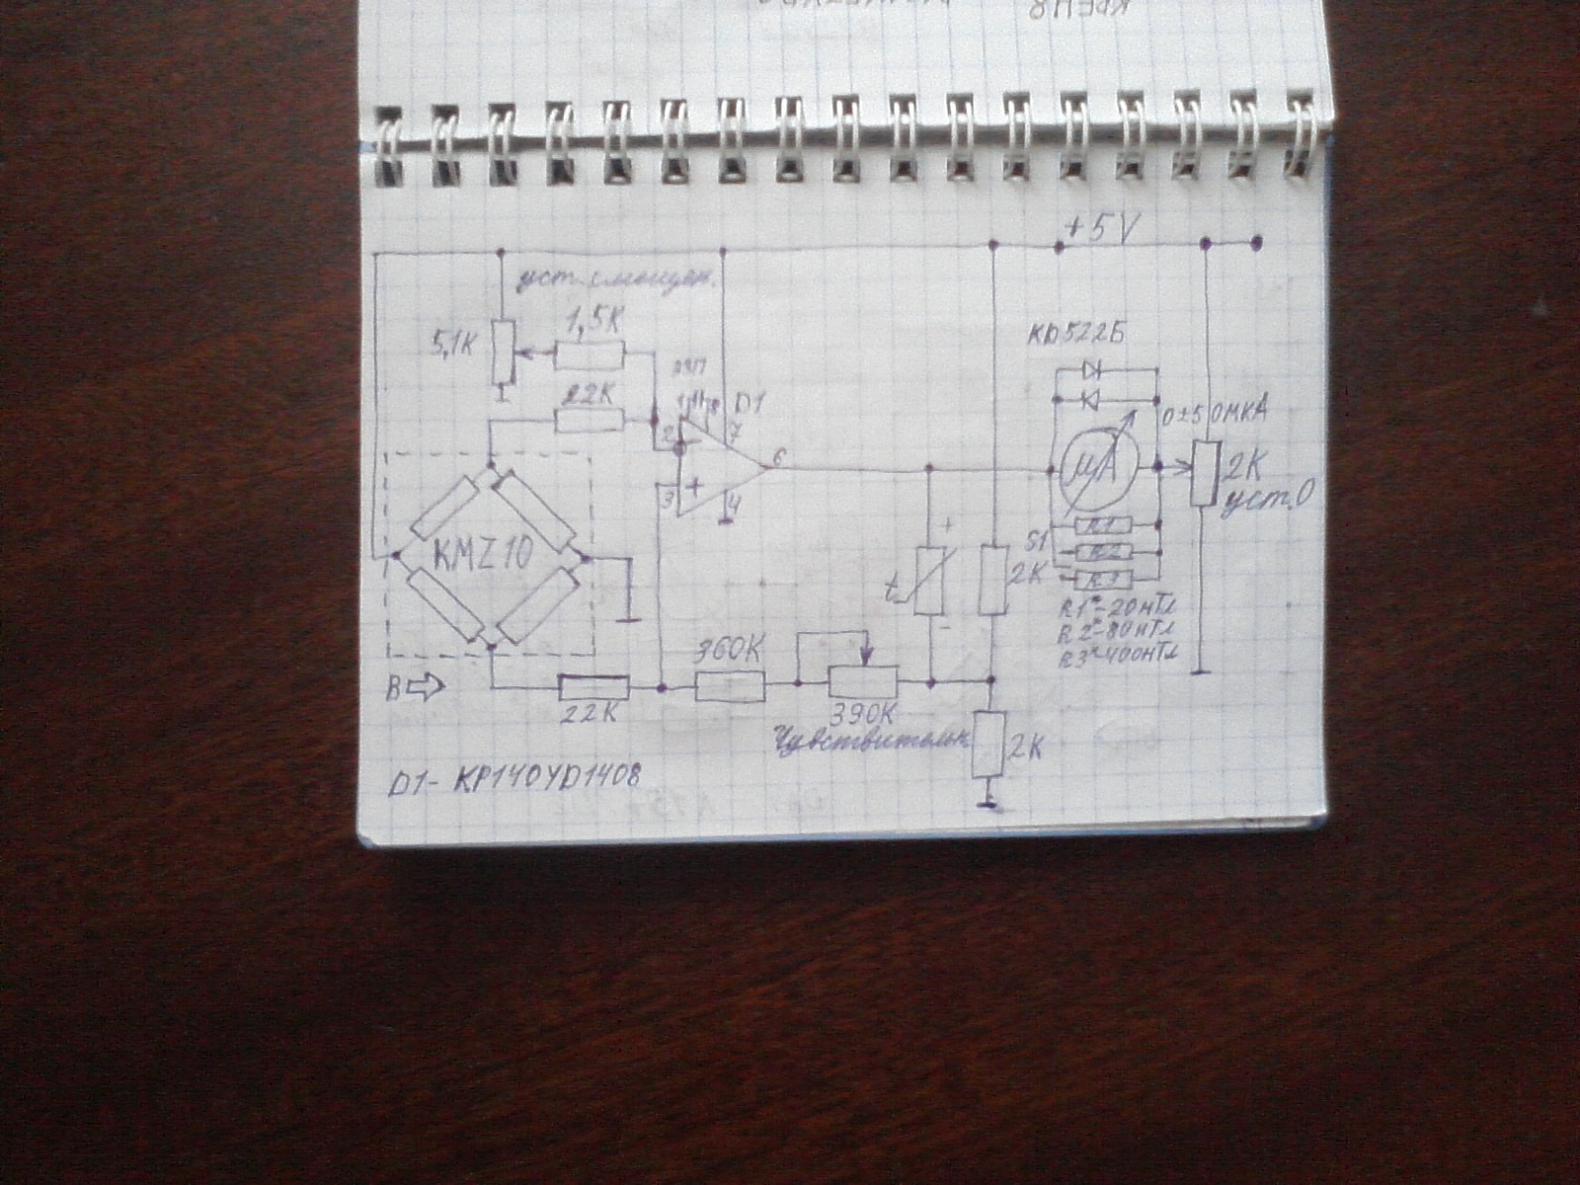 КРЕН8
+5V
уст. смещен.
5,1K
1,5K
22K
D1
2
7
6
3
4
KMZ10
КД522Б
0±50МКА
µA
2K
уст.0
+
t
-
2K
S1
R1
R2
R3
R1*-20нТл
R2*-80нТл
R3*-400нТл
B
22K
360K
390K
Чувствительн
2K
D1- КР140УД1408